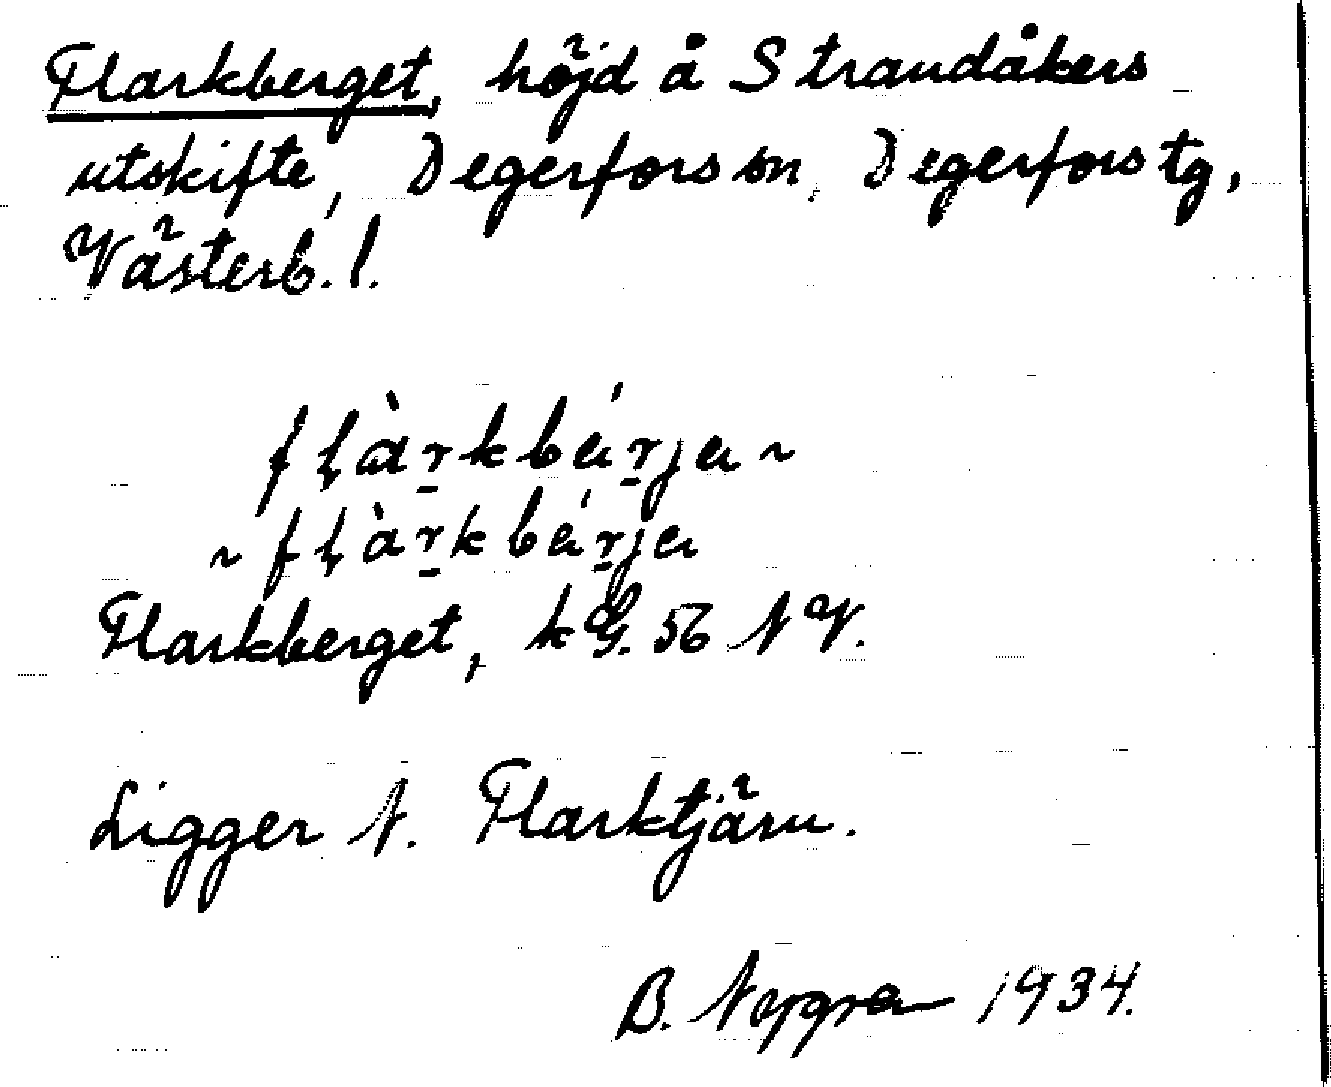 Flarkberget, höjd å Strandåkers
utskifte, Degerfors sn, Degerfors tg,
Västerb. l.
flàr̲kbár̲ja ~
~ flàr̲kbár̲ja
Flarkberget, kG. 56 NV.
Ligger N. Flarktjärn.
B. Nygren 1934.